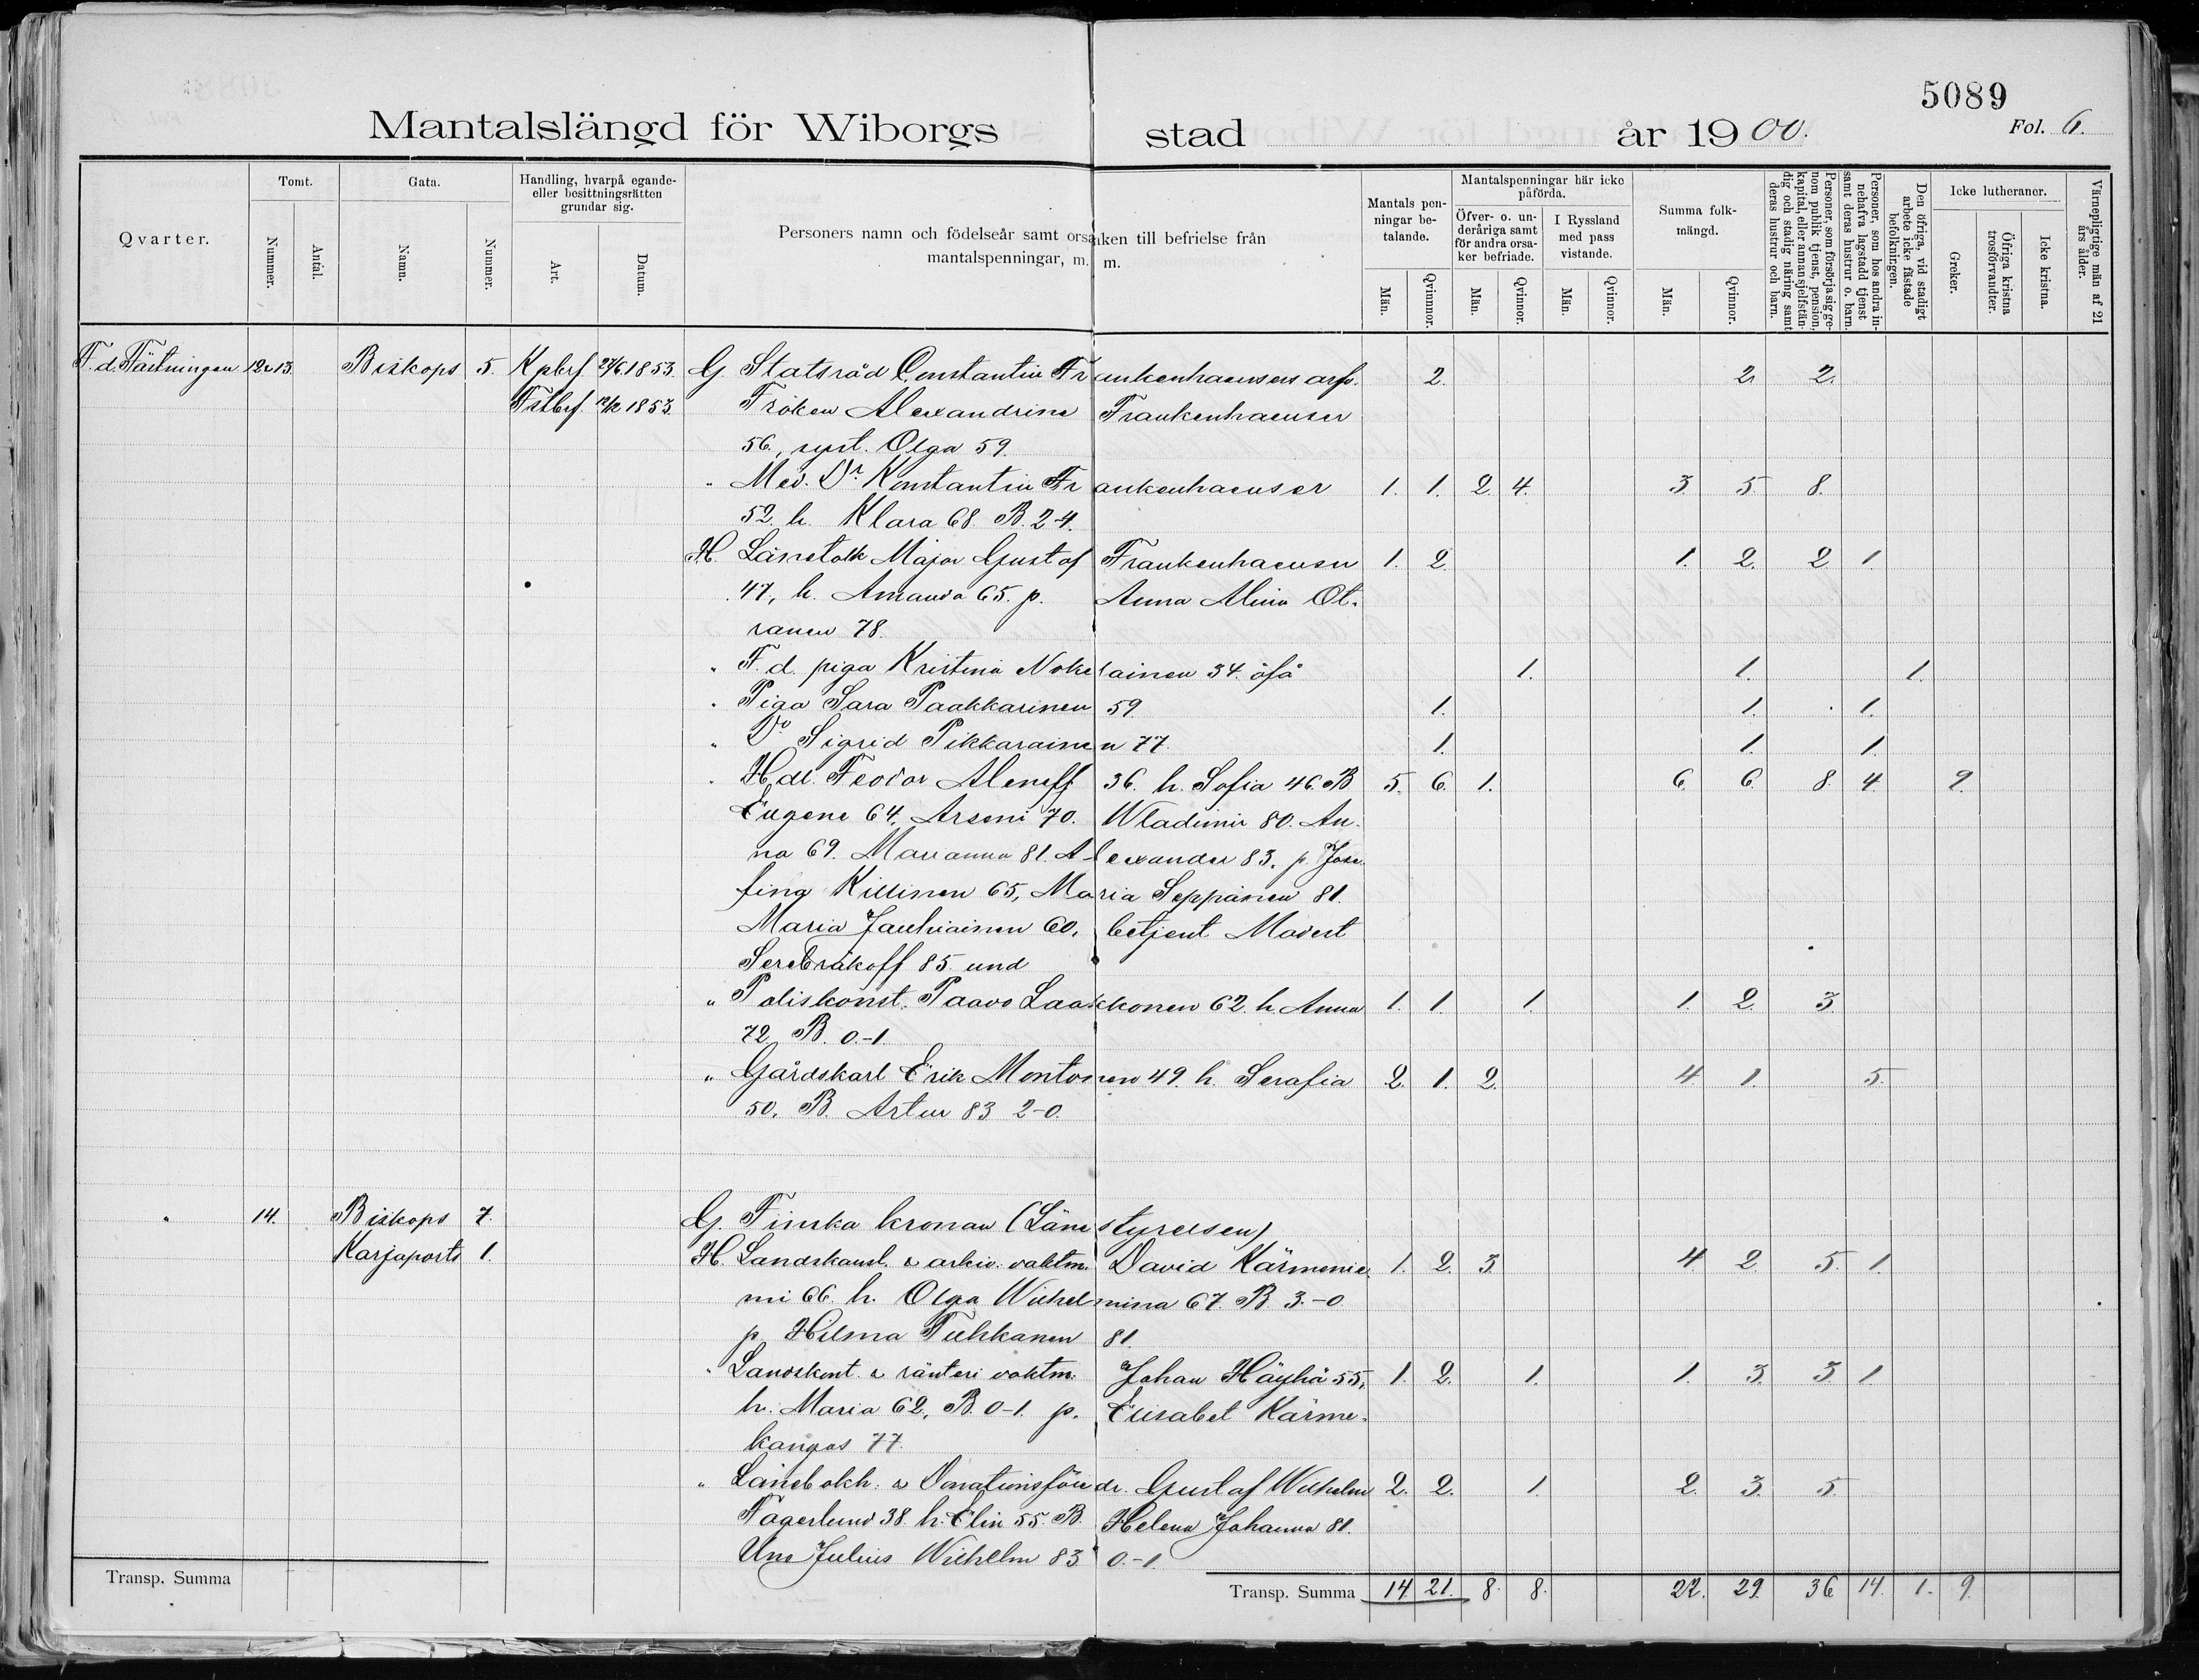 5089
Mantalslängd för Wiborgs stad år 1900.
Fol. 6.
Qvarter.
Tomt.
Nummer.
Antal.
Gata.
Namn.
Nummer.
Handling, hvarpå egande- eller besittningsrätten grundar sig.
Art.
Datum.
Personers namn och födelseår samt orsaken till befrielse från
mantalspenningar, m. m.
Mantals penningar betalande.
Män.
Qvinnor.
Mantalspenningar här icke påförda.
Öfver- o. underåriga samt för andra orsaker befriade.
Män.
Qvinnor.
I Ryssland med pass vistande.
Män.
Qvinnor.
Summa folkmängd.
Män.
Qvinnor.
Personer, som försörja sig genom publik tjenst, pension, kapital, eller annan sjelfständig och stadig näring samt deras hustrur och barn.
Personer, som hos andra innehafva lagstadd tjenst samt deras hustrur o. barn.
Den öfriga, vid stadigt arbete icke fästade befolkningen.
Icke lutheraner.
Greker.
Öfriga kristna trosförvandter.
Icke kristna.
Värnepligtige män af 21 års ålder.
F. d. Fästningen 12 o 13. Biskops 5. Kpbrf. 27/6 1853. G. Statsråd Constantin Frankenhaeusers arfv. 2. 2. 2.
Fstbrf. 12/12 1853. Fröken Alexandrine Frankenhaeuser
56, syst. Olga 59.
" Med. Dr. Konstantin Frankenhaeuser 1. 1. 2. 4. 3. 5. 8.
52. h. Klara 68. B. 2-4.
H. Länetolk Major Gustaf Frankenhaeuser 1. 2. 1. 2. 2. 1.
47, h. Amanda 65. p. Anna Alina Ot-
ranen 78.
" F. d. piga Kristina Nokelainen 34. öfå 1. 1. 1.
" Piga Sara Paakkarinen 59. 1. 1. 1.
" Do Sigrid Pikkarainen 77. 1. 1. 1.
" Hdl. Feodor Aleneff 36. h. Sofia 46. B 5. 6. 1. 6. 6. 8. 4. 9.
Eugene 64, Arseni 70. Wladimir 80. An-
na 69. Marianna 81. Alexander 83. p. Jose-
fina Killinen 65, Maria Seppänen 81.
Maria Jauhiainen 60, betjent Modest
Serebräkoff 85. und
" Poliskonst. Paavo Laakkonen 62. h. Anna 1. 1. 1. 1. 2. 3.
72. B. 0-1.
" Gårdskarl Erik Montonen 49. h. Serafia 2. 1. 2. 4. 1. 5.
50. B. Artur 83 2-0.
" 14. Biskops 7. G. Finska kronan (Länestyrelsen)
Karjaports 1. H. Landskansl. & arkiv. vaktm. David Kärmenie- 1. 2. 3. 4. 2. 5. 1.
mi 66. h. Olga Wilhelmina 67. B. 3-0.
p. Hilma Tuhkanen 81.
" Landskont. & ränteri vaktm. Johan Häyhä 55, 1. 2. 1. 1. 3. 3. 1
h. Maria 62, B. 0-1. p. Elisabet Kärme-
kangas 77.
" Länebokh. & Donationsförvdr. Gustaf Wilhelm 2. 2. 1. 2. 3. 5.
Fagerlund 38. h. Elin 55. B. Helena Johanna 81.
Uno Julius Wilhelm 83. 0-1.
Transp. Summa
Transp. Summa 14. 21. 8. 8. 22. 29. 36 14. 1. 9.